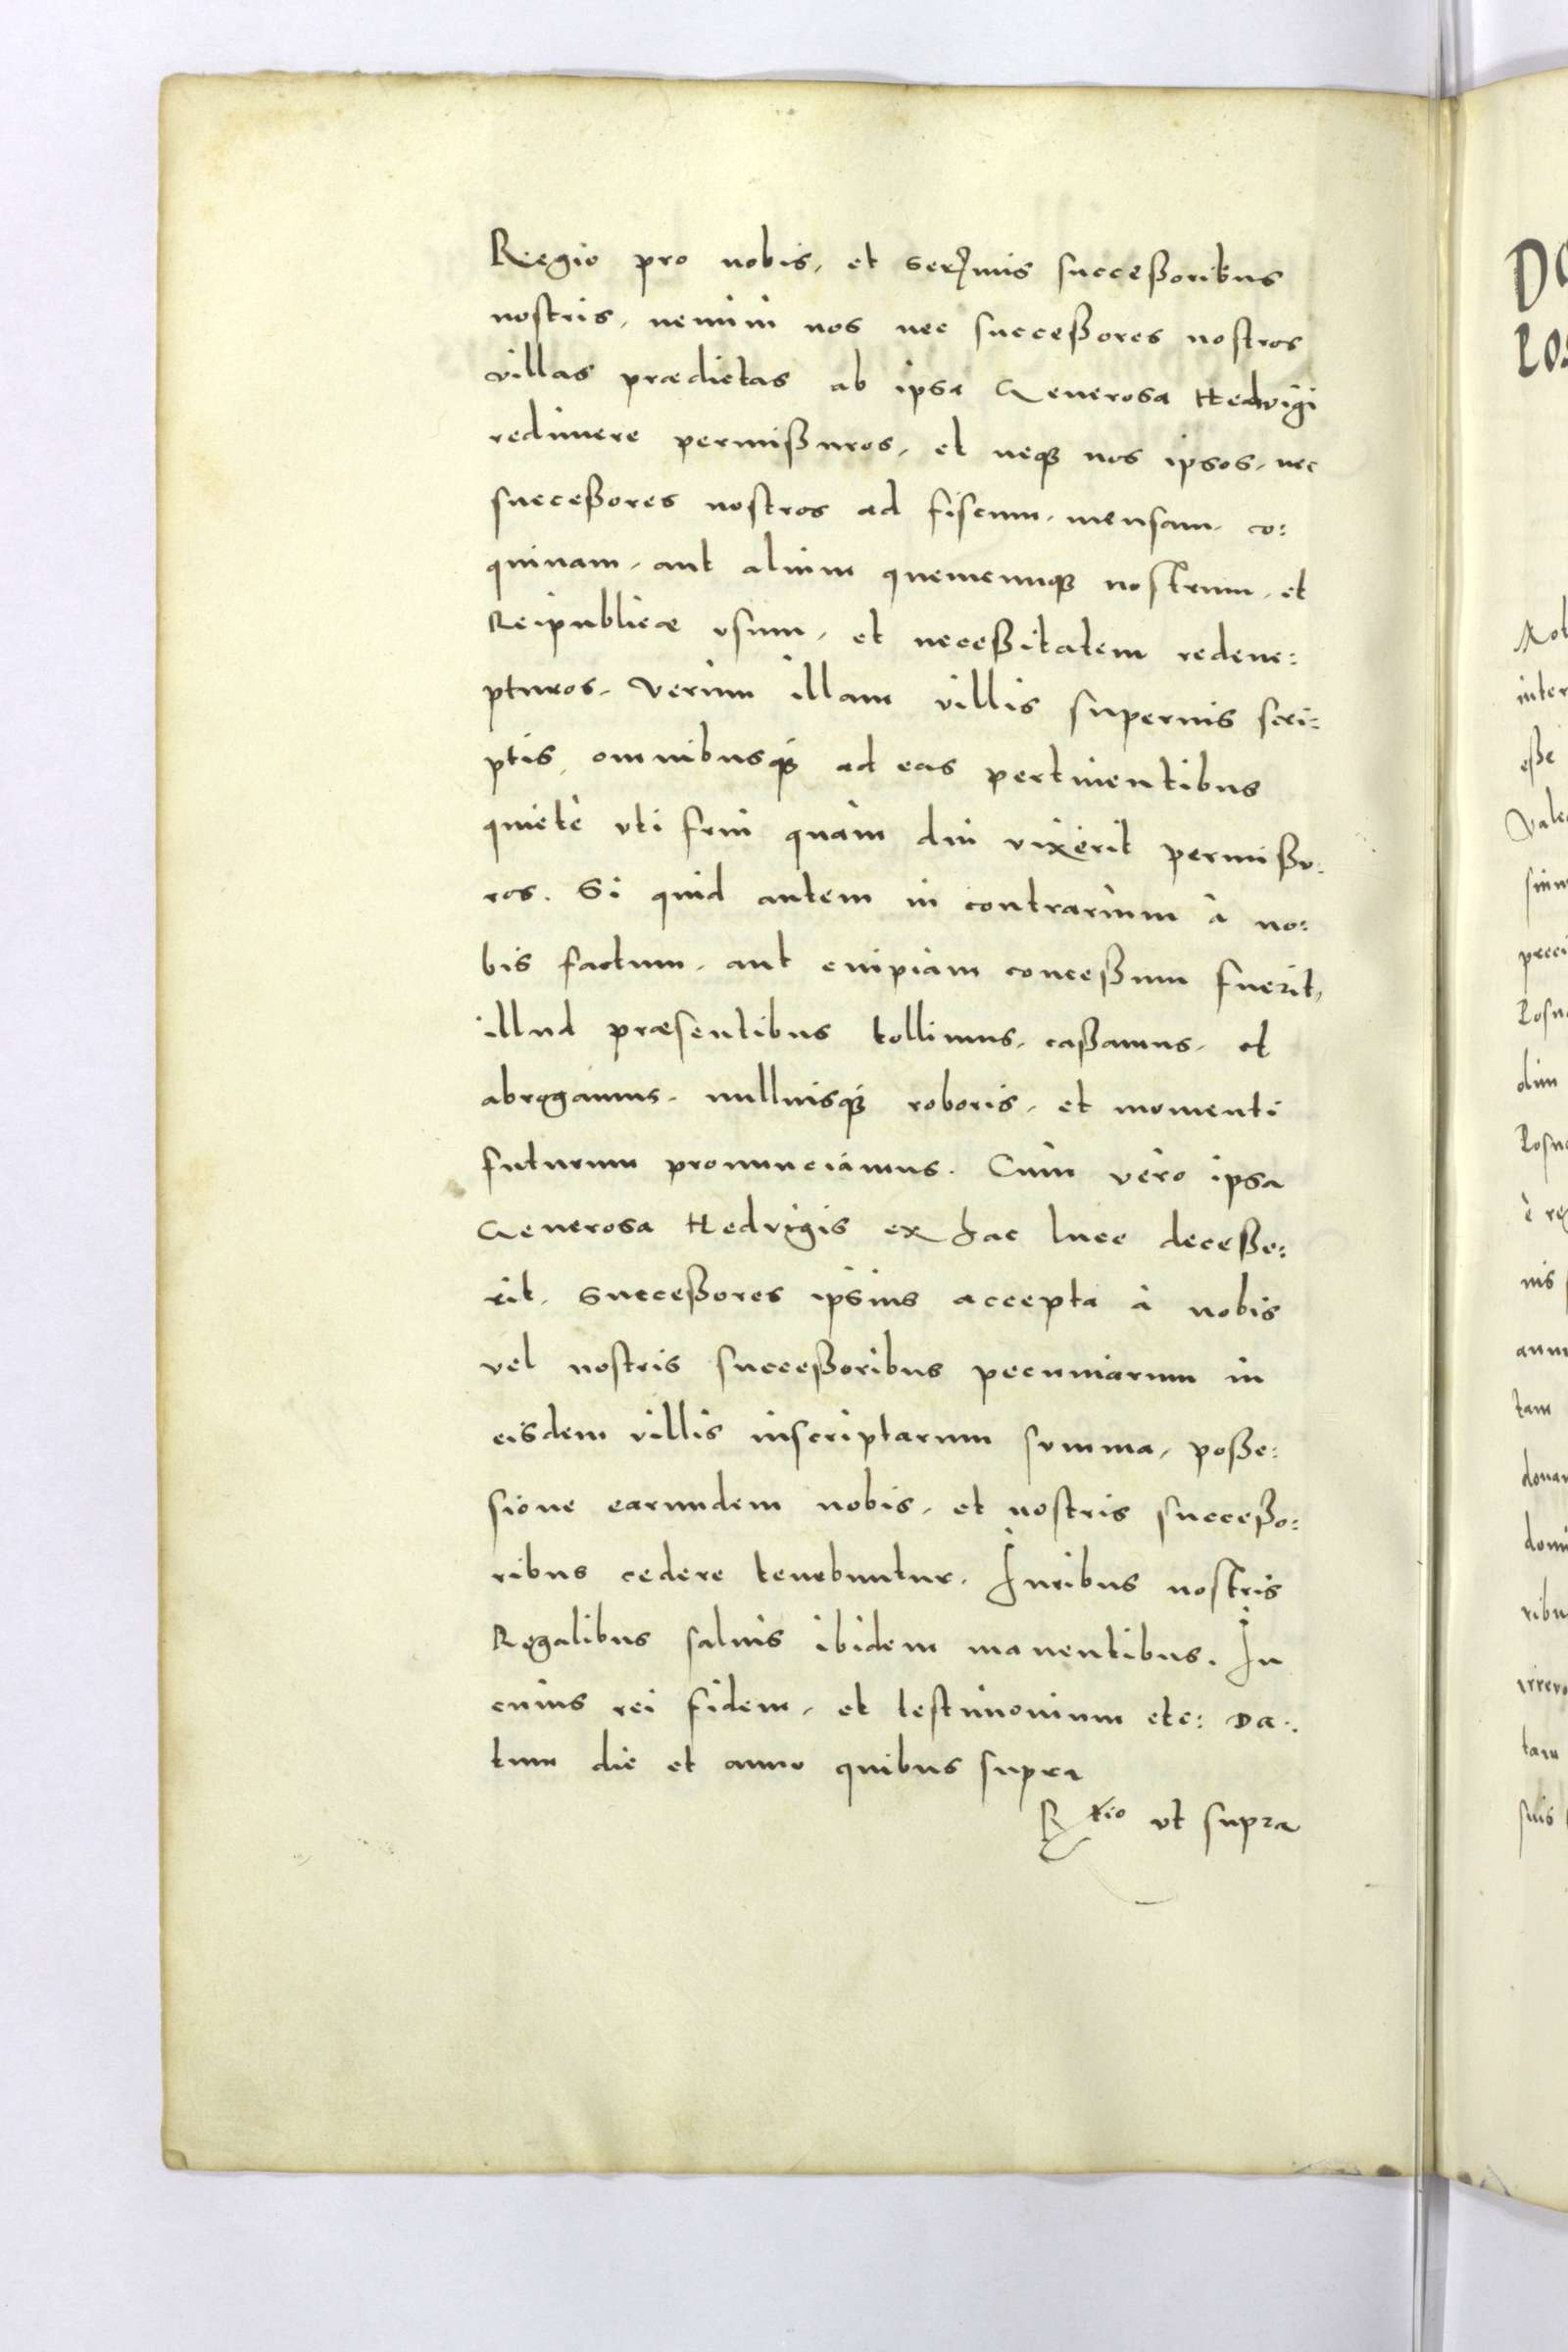 Regio pro nobis, et Serenmis succeßoribus
nostris, nemini nos nec succeßores nostros
villas prædictas ab ipsa Generosa Hedvigi
redimere permißuros, et neq nos ipsos, nec
succeßores nostros ad fiscum, mensam, co:
quinam, aut alium quemcunq nostrum, et
Reipublicæ vsum, et neceßitatem redem:
pturos. Verùm illam villis supernis scri:
ptis, omnibusq ad eas pertinentibus
quietè vti frui quàm diu vixerit permißu:
ros. Si quid autem in contrarium à no:
bis factum, aut cuipiam conceßum fuerit,
illud præsentibus tollimus, caßamus, et
abrogamus, nulliusq roboris, et momenti
futurum pronunciamus. Cùm vero ipsa
Generosa Hedvigis ex hac luce deceße:
rit, Succeßores ipsius accepta à nobis
vel nostris succeßoribus pecuniarum in
eisdem villis inscriptarum summa, poße:
sione earundem nobis, et nostris succeßo:
ribus cedere tenebuntur. Iuribus nostris
Regalibus saluis ibidem manentibus. In
cuius rei fidem, et testimonium etc: Da:
tum die et anno quibus supra
Rtio vt supra
inter
eße
tam
tam